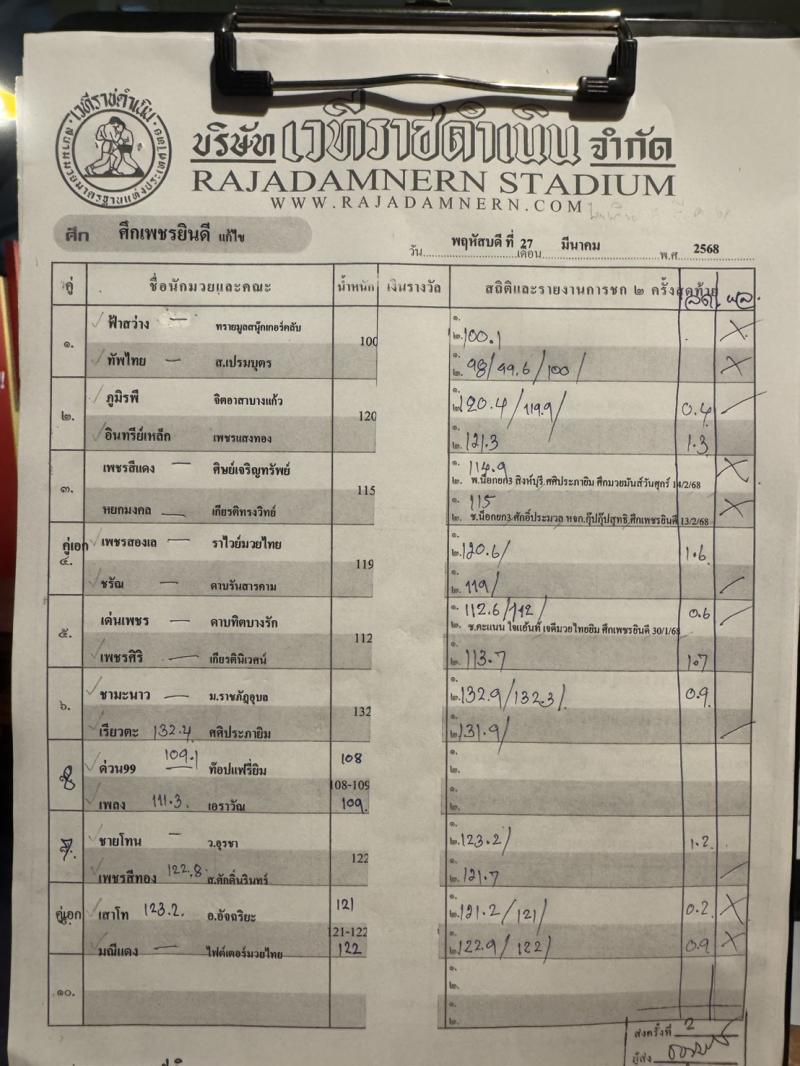 เวทีราชดำเนิน
สนามมวยมาตรฐานแห่งประเทศไทย
บริษัท เวทีราชดำเนิน จำกัด
RAJADAMNERN STADIUM
WWW.RAJADAMNERN.COM
ศึก ศึกเพชรยินดี แก้ไข
วัน พฤหัสบดี ที่ 27 เดือน มีนาคม พ.ศ. 2568
คู่ ชื่อนักมวยและคณะ น้ำหนัก เงินรางวัล สถิติและรายงานการชก ๒ ครั้งสุดท้าย ผล.
๑. ฟ้าสว่าง — ทรายมูลสนุ๊กเกอร์คลับ 100 ๑. ๒. 100.1 X
ทัพไทย — ส.เปรมบุตร ๑. ๒. 98/99.6/100/ X
๒. ภูมิรพี จิตอาสาบางแก้ว 120 ๑. ๒. 120.4/119.9/ 0.4 /
อินทรีย์เหล็ก เพชรแสงทอง ๑. ๒. 121.3 1.3
๓. เพชรสีแดง — ศิษย์เจริญทรัพย์ 115 ๑. 114.9 X
๒. พ.น็อกยก3 สิงห์บุรี.ศศิประภายิม ศึกมวยมันส์วันศุกร์ 14/2/68
หยกมงคล — เกียรติทรงวิทย์ ๑. 115 X
๒. ช.น็อกยก3.ศักอิ์ประมวล หจก.กู๊ปกู๊ปสุทธิ.ศึกเพชรยินดี 13/2/68
คู่เอก ๔. เพชรสองเล — ราไวย์มวยไทย 119 ๑. ๒. 120.6/ 1.6
ชรัณ — ดาบรันสารคาม ๑. ๒. 119/ /
๕. เด่นเพชร — ดาบทิตบางรัก 112 ๑. 112.6/112/ 0.6 /
๒. ช.คะแนน ใจแอ้นท์ เจดีมวยไทยยิม ศึกเพชรยินดี 30/1/68
เพชรศิริ — เกียรตินิเวศน์ ๑. ๒. 113.7 1.7
๖. ชามะนาว — ม.ราชภัฏอุบล 132 ๑. ๒. 132.9/132.3/. 0.9
เรียวตะ 132.4 ศศิประภายิม ๑. ๒. 131.9/ /
8 ด่วน99 109.1 ท๊อปแฟรี่ยิม 108 ๑. ๒.
108-109
เพลง 111.3. เอราวัณ 109. ๑. ๒.
7. ชายโทน — ว.อุรชา 122 ๑. ๒. 123.2/ 1.2
เพชรสีทอง 122.8 ส.ศักดิ์นรินทร์ ๑. ๒. 121.7 /
คู่เอก เสาโท 123.2. อ.อัจฉริยะ 121 ๑. ๒. 121.2/121/ 0.2 X
121-122
มณีแดง — ไฟต์เตอร์มวยไทย 122 ๑. ๒. 122.9/122/ 0.9 X
๑๐. ๑. ๒.
๑. ๒.
ส่งครั้งที่ 2
ผู้ส่ง